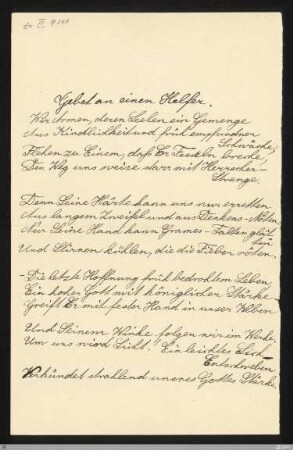 Zu III 9240
Gebet an einen Helfer.
Wir Armen, deren Seelen ein Gemenge
Aus Kindlichkeit und früh empfundner
Schwäche,
Flehen zu Einem, daß Er Fesseln breche,
Den Weg uns weise starr mit Herrscher-
Strenge.
Denn Seine Härte kann uns nur erretten
Aus langem Zweifel und aus Denkens-Nöten.
Nur Seine Hand kann Grames-Falten glät
ten
Und Stirnen kühlen, die die Fieber röten.
- Die letzte Hoffnung früh bedrohtem Leben,
Ein hoher Gott mit königlicher Stärke
Greift Er mit fester Hand in unser Weben
Und Seinem Winke folgen wir im Werke,
Um uns wird Licht! Ein leichtes Sich-
Entschweben
Verkündet strahlend unsres Gottes Stärke.